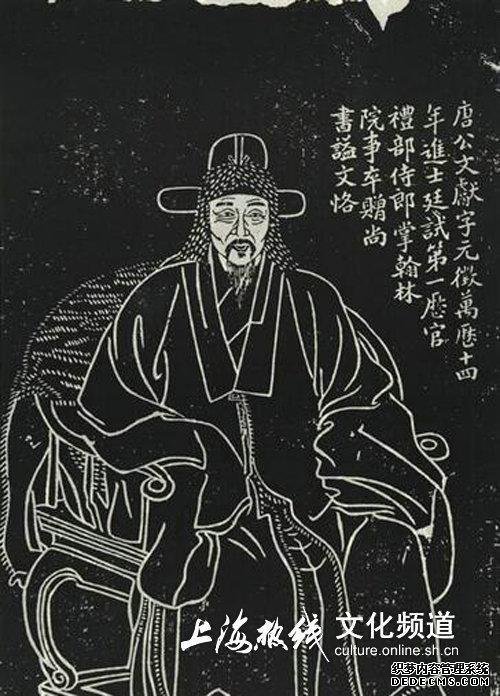 唐公文獻字元徵萬歷十四
年進士廷試第一歷官
禮部侍郎掌翰林
院事卒贈尚
書諡文恪
上海热线 文化频道
culture.online.sh.cn
织梦内容管理系统
DEDECMS.COM